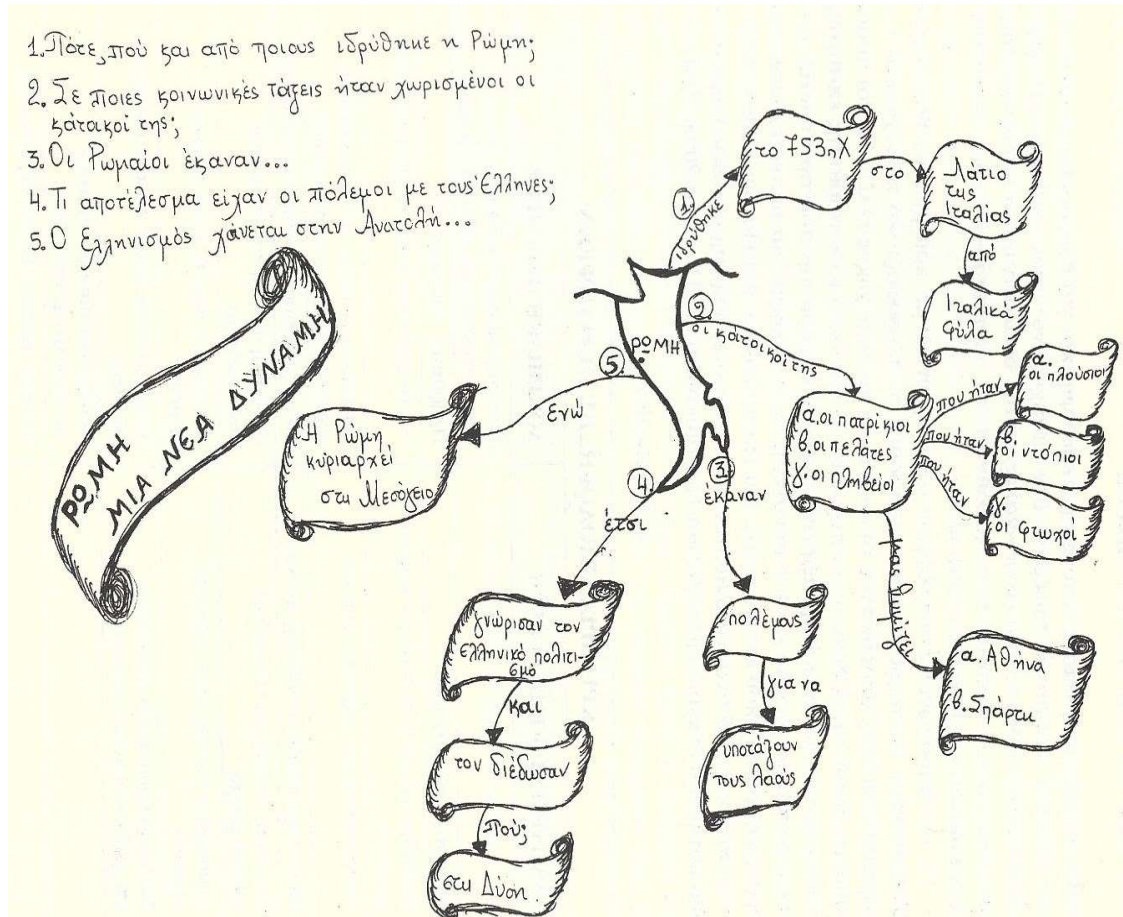 1. Πότε, πού και από ποιους ιδρύθηκε η Ρώμη;
2. Σε ποιες κοινωνικές τάξεις ήταν χωρισμένοι οι
κάτοικοί της;
3. Οι Ρωμαίοι έκαναν...
4. Τι αποτέλεσμα είχαν οι πόλεμοι με τους Έλληνες;
5. Ο Ελληνισμός χάνεται στην Ανατολή...
ΡΩΜΗ
ΜΙΑ ΝΕΑ ΔΥΝΑΜΗ
ΡΩΜΗ
1.
ιδρύθηκε
το 753πΧ
στο
Λάτιο
της
Ιταλίας
από
Ιταλικά
φύλα
2.
οι κάτοικοί της
α. οι πατρίκιοι
β. οι πελάτες
γ. οι πληβείοι
που ήταν
α.
οι πλούσιοι
που ήταν
β.
οι ντόπιοι
που ήταν
γ.
οι φτωχοί
μας θυμίζει
α. Αθήνα
β. Σπάρτη
3.
έκαναν
πολέμους
για να
υποτάξουν
τους λαούς
4.
έτσι
γνώρισαν τον
ελληνικό πολιτι-
σμό
και
τον διέδωσαν
πού;
στη Δύση
5.
ενώ
Η Ρώμη
κυριαρχεί
στη Μεσόγειο